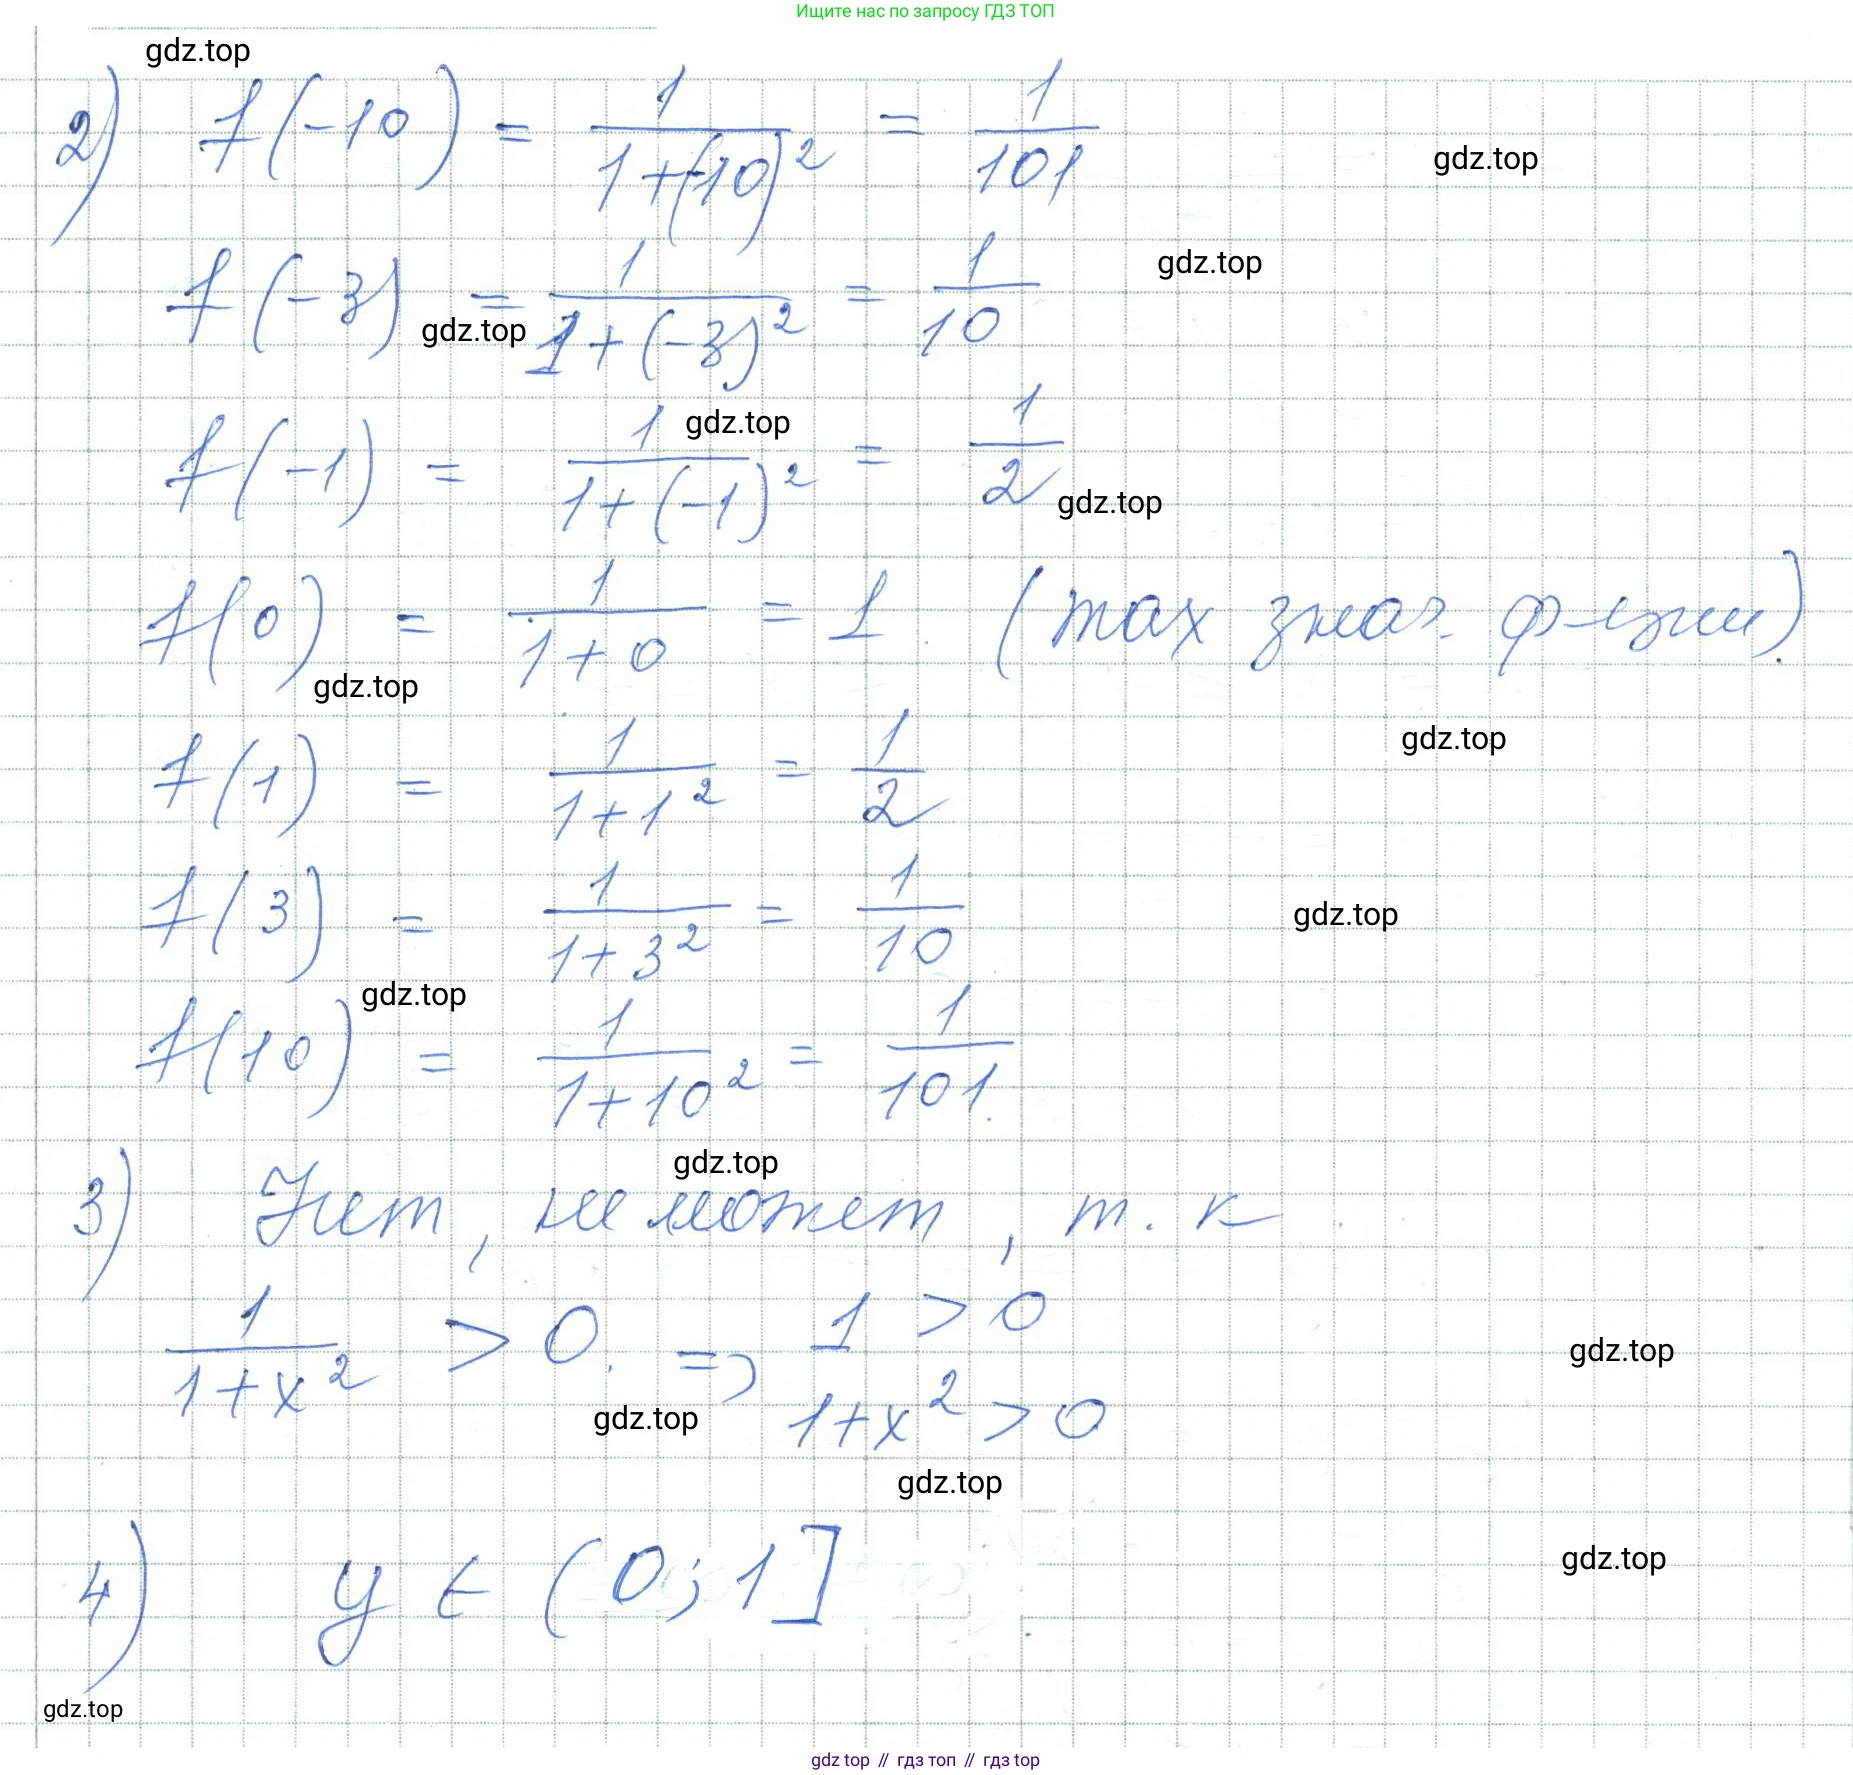 Ищите нас по запросу ГДЗ ТОП
gdz.top
2) f(-10) = 1/(1+(-10)²) = 1/101
gdz.top
f(-3) = 1/(1+(-3)²) = 1/10
gdz.top
gdz.top
f(-1) = 1/(1+(-1)²) = 1/2
gdz.top
gdz.top
f(0) = 1/(1+0) = 1 (max знач. ф-ции).
gdz.top
gdz.top
f(1) = 1/(1+1²) = 1/2
f(3) = 1/(1+3²) = 1/10
gdz.top
gdz.top
f(10) = 1/(1+10²) = 1/101.
gdz.top
3) Нет, не может, т.к
1/(1+x²) > 0. => 1 > 0
1+x² > 0
gdz.top
gdz.top
gdz.top
4) y ∈ (0; 1]
gdz.top
gdz.top
gdz top // гдз топ // гдз top